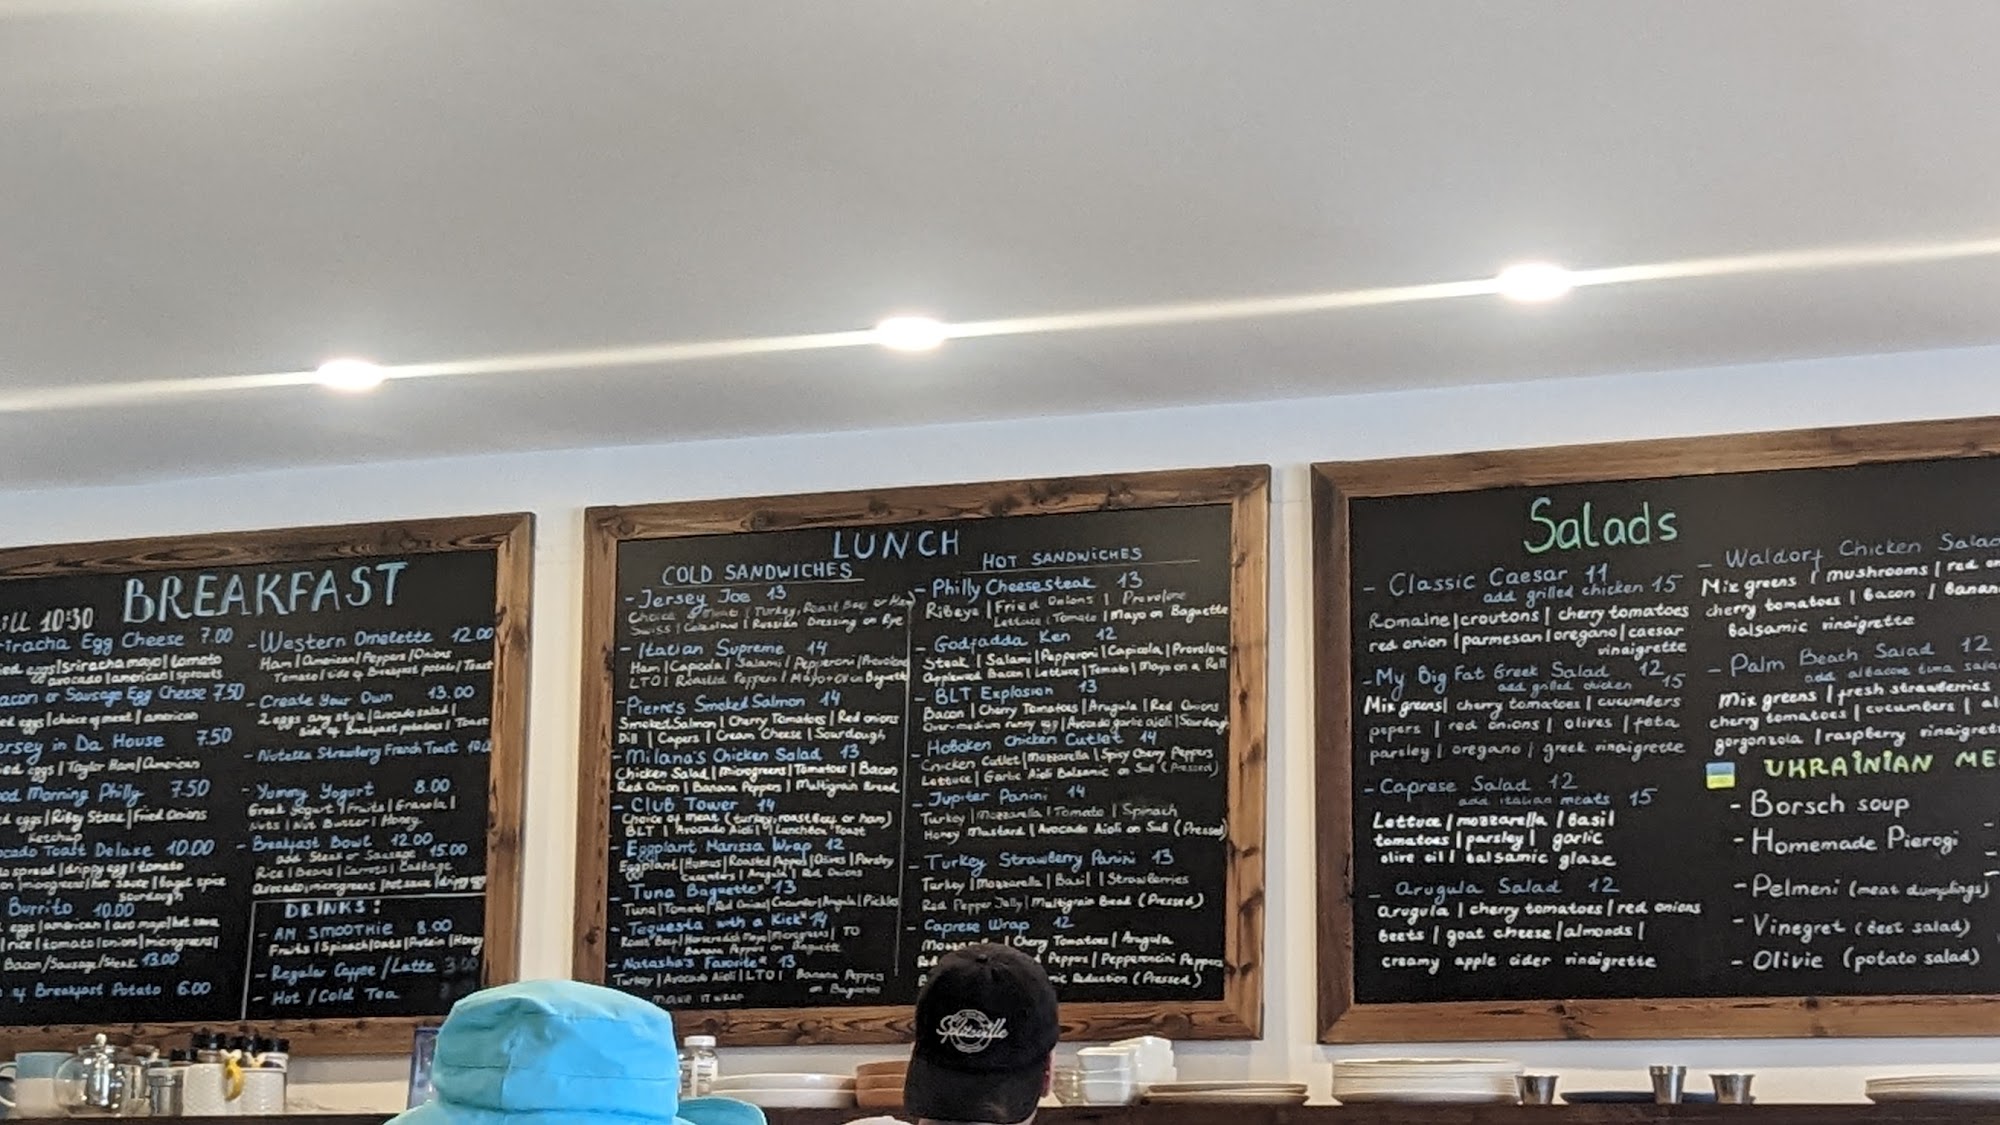 BREAKFAST
ill 10:30
riracha Egg Cheese 7.00
ied eggs|sriracha mayo|tomato
avocado|american|sprouts
acon or Sausage Egg Cheese 7.50
ed eggs|choice of meat|american
ersey in Da House 7.50
ied eggs|Taylor Ham|American
od Morning Philly 7.50
d eggs|Ribey Steak|Fried Onions
Ketchup
ocado Toast Deluxe 10.00
o spread|drippy egg|tomato
on|microgreens|hot sauce|bagel spice
Sourdough
Burrito 10.00
eggs|american|avo mayo|hot sauce
|rice|tomato|onion|microgreens|
Bacon/Sausage/Steak 13.00
of Breakfast Potato 6.00
- Western Omelette 12.00
Ham|American|Peppers|Onions
Tomato|Side of Breakfast potato|Toast
- Create Your Own 13.00
2 eggs any style|Avocado salad|
Side of Breakfast potatoes|Toast
- Nutella Strawberry French Toast
- Yummy Yogurt 8.00
Greek Yogurt|Fruits|Granola|
Nuts|Nut Butter|Honey
- Breakfast Bowl 12.00
add Steak or Sausage 15.00
Rice|Beans|Carrots|Cabbage
Avocado|microgreens|hot sauce|drippy egg
DRINKS:
- AM SMOOTHIE 8.00
Fruits|Spinach|Oats|Protein|Honey
- Regular Coffee/Latte 3.00
- Hot/Cold Tea
LUNCH
COLD SANDWICHES
- Jersey Joe 13
Choice Meats|Turkey, Roast Beef or Ham
Swiss|Coleslaw|Russian Dressing on Rye
- Italian Supreme 14
Ham|Capicola|Salami|Pepperoni|Provolone
LTO|Roasted Peppers|Mayo+OV on Baguette
- Pierre's Smoked Salmon 14
Smoked Salmon|Cherry Tomatoes|Red onions
Dill|Capers|Cream Cheese|Sourdough
- Milana's Chicken Salad 13
Chicken Salad|Microgreens|Tomatoes|Bacon
Red Onion|Banana Peppers|Multigrain Bread
- Club Tower 14
Choice of meat (turkey, roast beef or ham)
BLT|Avocado Aioli|Lunchbox Toast
- Eggplant Harissa Wrap 12
Eggplant|Humus|Roasted Pepper|Olives|Parsley
Cucumbers|Arugula|Red Onions
- Tuna Baguette 13
Tuna|Tomato|Red Onion|Cucumber|Arugula|Pickles
- Tequesta with a Kick 14
Roast Beef|Horseradish Mayo|Microgreens|TO
Banana Peppers on Baguette
- Natasha's Favorite 13
Turkey|Avocado Aioli|LTO|Banana Peppers
on Baguette
make it wrap
HOT SANDWICHES
- Philly Cheesesteak 13
Ribeye|Fried Onions|Provolone
Lettuce|Tomato|Mayo on Baguette
- Godfadda Ken 12
Steak|Salami|Pepperoni|Capicola|Provolone
Applewood Bacon|Lettuce|Tomato|Mayo on a Roll
- BLT Explosion 13
Bacon|Cherry Tomatoes|Arugula|Red Onions
Over-medium runny egg|Avocado garlic aioli|Sourdough
- Hoboken Chicken Cutlet 14
Chicken Cutlet|Mozzarella|Spicy Cherry Peppers
Lettuce|Garlic Aioli Balsamic on Sub (Pressed)
- Jupiter Panini 14
Turkey|Mozzarella|Tomato|Spinach
Honey Mustard|Avocado Aioli on Sub (Pressed)
- Turkey Strawberry Panini 13
Turkey|Mozzarella|Basil|Strawberries
Red Pepper Jelly|Multigrain Bread (Pressed)
- Caprese Wrap 12
Cherry Tomatoes|Arugula
Peppers|Pepperoncini Peppers
Reduction (Pressed)
Salads
- Classic Caesar 11
add grilled chicken 15
Romaine|croutons|cherry tomatoes
red onion|parmesan|oregano|caesar
vinaigrette
- My Big Fat Greek Salad 12
add grilled chicken 15
Mix greens|cherry tomatoes|cucumbers
pepers|red onions|olives|feta
parsley|oregano|greek vinaigrette
- Caprese Salad 12
add italian meats 15
Lettuce|mozzarella|basil
tomatoes|parsley|garlic
olive oil|balsamic glaze
- Arugula Salad 12
arugula|cherry tomatoes|red onions
beets|goat cheese|almonds|
creamy apple cider vinaigrette
- Waldorf Chicken Salad
Mix greens|mushrooms|red on
cherry tomatoes|bacon|banan
balsamic vinaigrette
- Palm Beach Salad 12
add albacore tuna salad
Mix greens|fresh strawberries
cherry tomatoes|cucumbers|al
gorgonzola|raspberry vinaigrett
UKRAINIAN ME
- Borsch soup
- Homemade Pierogi
- Pelmeni (meat dumplings)
- Vinegret (beet salad)
- Olivie (potato salad)
Splitsville